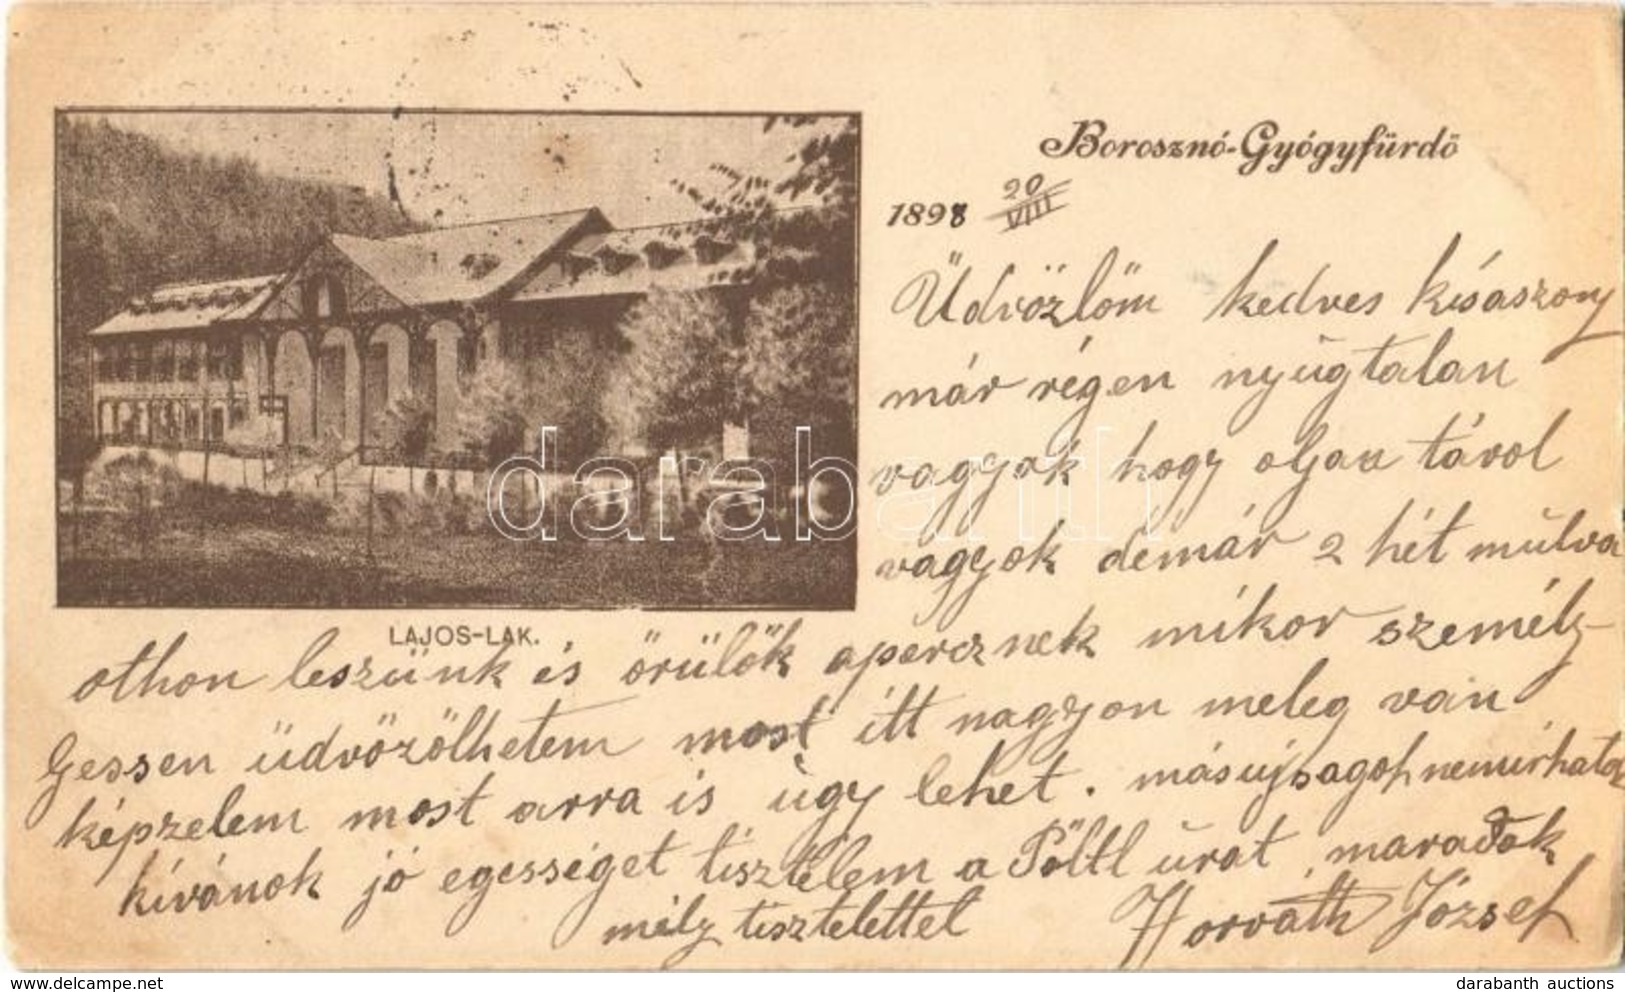 Borosznó-Gyógyfürdő
1898 20/VIII
Üdvözlöm kedves kisaszony
már régen nyugtalan
vagyok hogy oljan távol
vagyok demár 2 hét mulva
LAJOS-LAK.
othon leszünk és örülök apercznek mikor személy-
gessen üdvözölhetem most itt nagyon meleg van
képzelem most arra is úgy lehet. másujsagot nemirhatok
kívánok jó egességet tisztelem a Pöltl urat, maradok
mély tisztelettel Horváth József
darabanth
darabanth auctions
delcampe.net